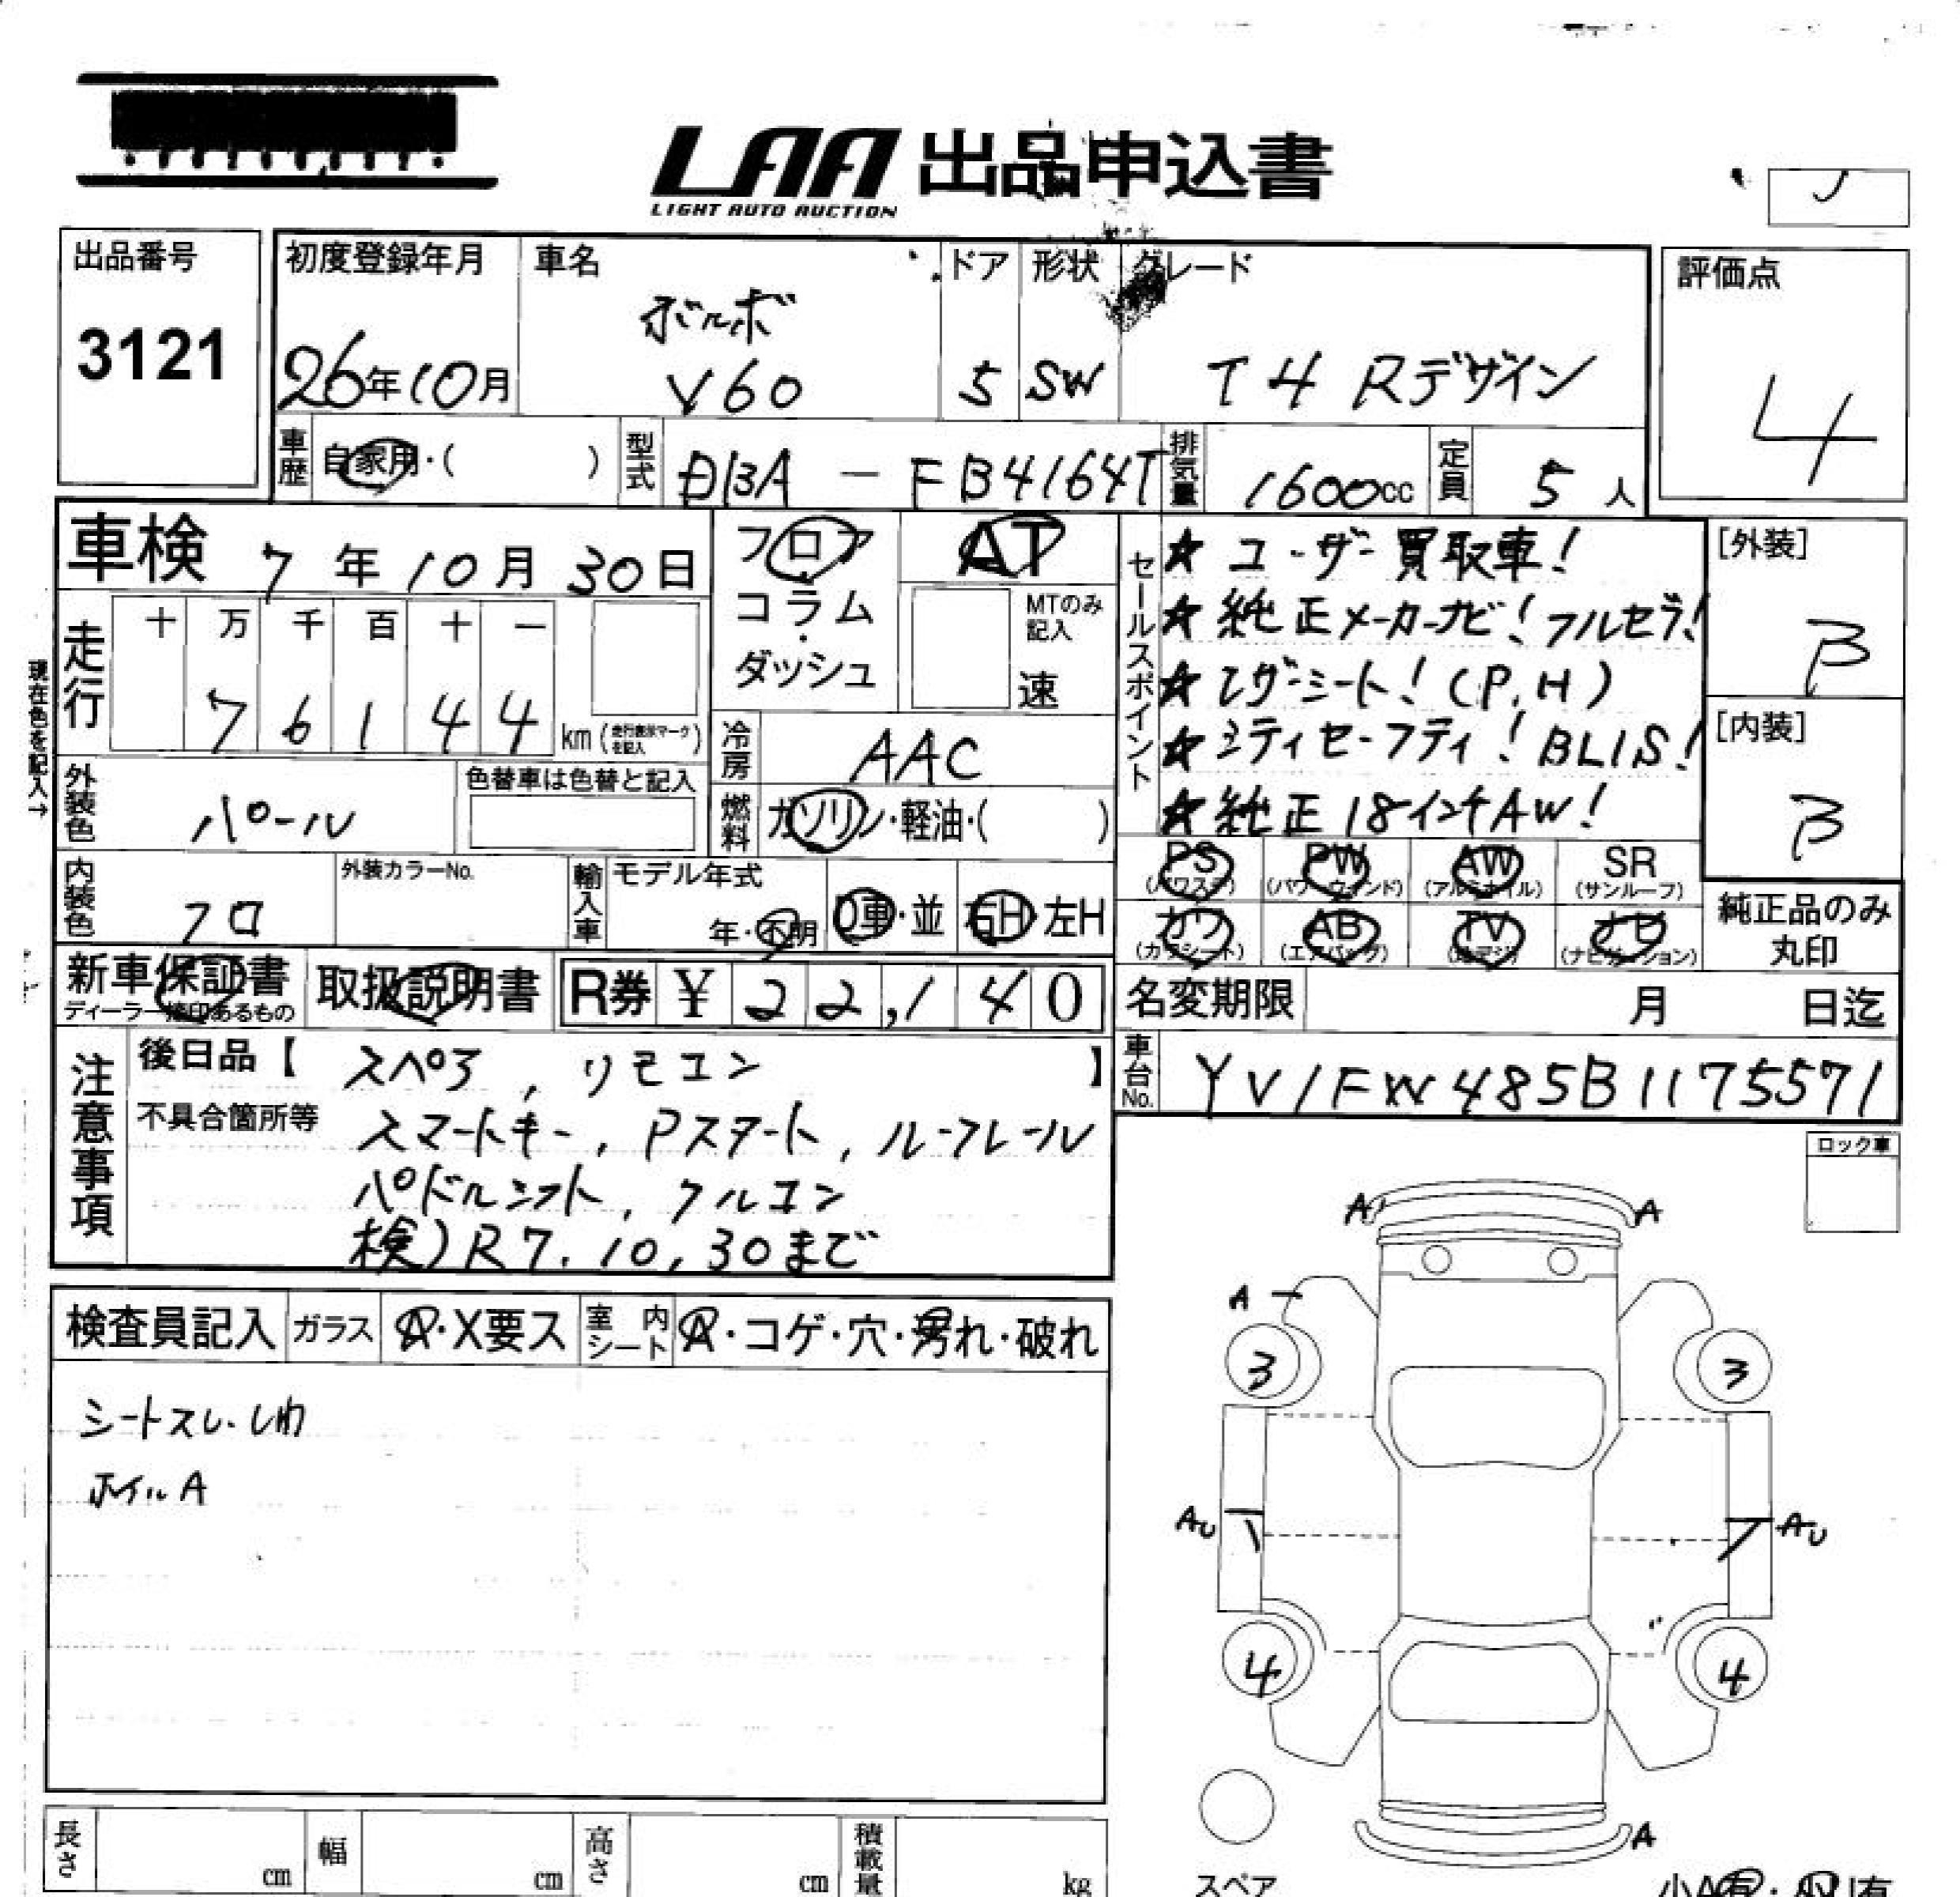 LAA 出品申込書
LIGHT AUTO AUCTION
出品番号
3121
初度登録年月
26年10月
車名
ボルボ
V60
ドア
5
形状
SW
グレード
T4 Rデザイン
評価点
4
車歴
自家用・( )
型式
DBA - FB4164T
排気量
1600cc
定員
5人
車検 7年10月30日
フロア
コラム
・
ダッシュ
AT
MTのみ記入
速
セールスポイント
★ユーザー買取車!
★純正メーカーナビ!フルセグ!
★レザーシート!(P,H)
★シティセーフティ!BLIS!
★純正18インチAW!
[外装]
B
[内装]
B
現在色を記入→
走行
十 万 千 百 十 一
7 6 1 4 4 km (走行表示マークを記入)
冷房
AAC
外装色
パール
色替車は色替と記入
燃料
ガソリン・軽油・( )
内装色
クロ
外装カラーNo.
輸入車
モデル年式
年・不明
D車・並
右H 左H
PS (パワステ)
PW (パワーウィンド)
AW (アルミホイル)
SR (サンルーフ)
カワ (カワシート)
AB (エアバッグ)
TV (地デジ)
ナビ (ナビゲーション)
純正品のみ
丸印
新車保証書
ディーラー捺印あるもの
取扱説明書
R券 ¥ 22,140
名変期限 月 日迄
車台No.
YV1FW485B1175571
注意事項
後日品【 スペア, リモコン 】
不具合箇所等
スマートキー, Pスタート, ルーフレール
パドルシフト, クルコン
検)R7.10,30まで
ロック車
検査員記入
ガラス
A・X要ス
室内シート
A・コゲ・穴・汚れ・破れ
シートスレ・しわ
ホイルA
A A
A
3 3
AU AU
4 4
A
スペア
長さ cm
幅 cm
高さ cm
積載量 kg